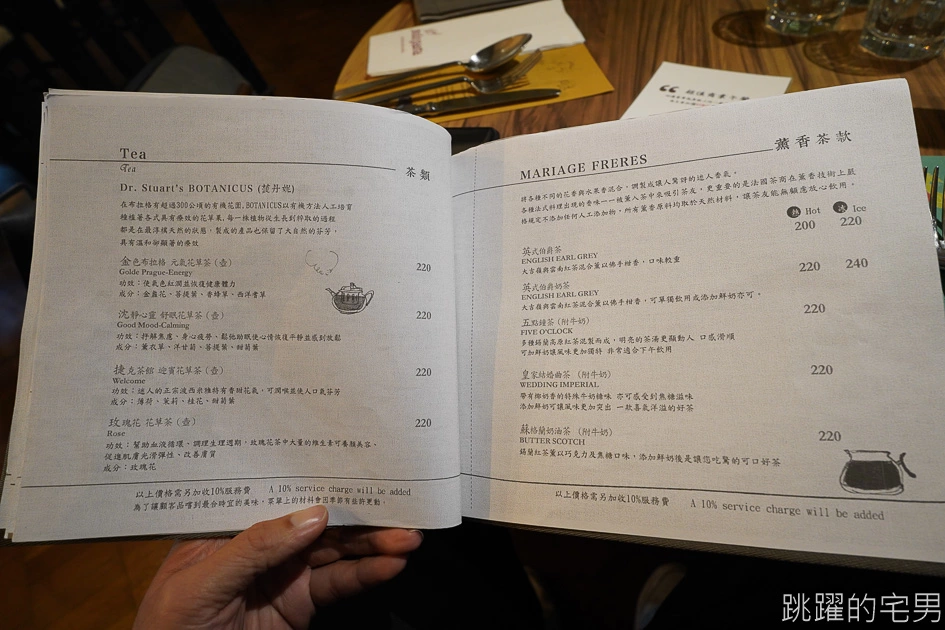 Tea
Tea
茶類
Dr. Stuart's BOTANICUS (荿丹妮)
在布格有超過300公頃的有機花園,BOTANICUS以有機方法人工培育
種植著各式具有療效的花草果,每一株植物從生長到粹取的過程
都是在最淳樸天然的狀態,製成的產品也保留了大自然的芬芳,
具有溫和卻顯著的療效
金色布拉格 元氣花草茶(壺) 220
Golde Prague-Energy
功效:使氣色紅潤並恢復健康體力
成分:金盞花、菩提葉、香蜂草、西洋蓍草
沈靜心靈 好眠花草茶(壺) 220
Good Mood-Calming
功效:抒解焦慮、身心疲勞、鬆弛助眠使心情恢復平靜並感到放鬆
成分:薰衣草、洋甘菊、菩提葉、甜菊葉
捷克茶館 迎賓花草茶(壺) 220
Welcome
功效:迷人的正宗波西米維特有香甜花氣,可潤喉並使人口氣芬芳
成分:薄荷、茉莉、桂花、甜菊葉
玫瑰花 花草茶(壺) 220
Rose
功效:幫助血液循環、調理生理週期,玫瑰花茶中大量的維生素可養顏美容、
促進肌膚光滑彈性、改善膚質
成分:玫瑰花
以上價格需另加收10%服務費 A 10% service charge will be added
為了讓顧客品嚐到最合時宜的美味,菜單上的材料會因季節有些許更動。
MARIAGE FRERES
薰香茶款
將各種不同的花香與水果香混合,調製成讓人驚訝的迷人香氣。
各種法式料理出現的香味一一被薰入茶中來吸引茶友,更重要的是法國茶商在薰香技術上嚴
格規定不添加任何人工添加物,所有薰香原料均取於天然材料,讓茶友能無顧慮放心飲用。
熱 Hot 冰 Ice
英式伯爵茶 200 220
ENGLISH EARL GREY
大吉嶺與雲南紅茶混合薰以佛手柑香,口味較重
英式伯爵奶茶 220 240
ENGLISH EARL GREY
大吉嶺與雲南紅茶混合薰以佛手柑香,可單獨飲用或添加鮮奶亦可。
五點鐘茶(附牛奶) 220
FIVE O'CLOCK
多種錫蘭高原紅茶混製而成,明亮的茶湯更顯動人 口感滑順
可加鮮奶讓風味更加獨特 非常適合下午飲用
皇家結婚曲茶 (附牛奶) 220
WEDDING IMPERIAL
帶有椰奶香的特殊牛奶糖味 亦可感受到焦糖滋味
添加鮮奶可讓風味更加突出 一款喜氣洋溢的好茶
蘇格蘭奶油茶 (附牛奶) 220
BUTTER SCOTCH
錫蘭紅茶薰以巧克力及焦糖口味,添加鮮奶後是讓您吃驚的可口好茶
以上價格需另加收10%服務費 A 10% service charge will be added
跳躍的宅男